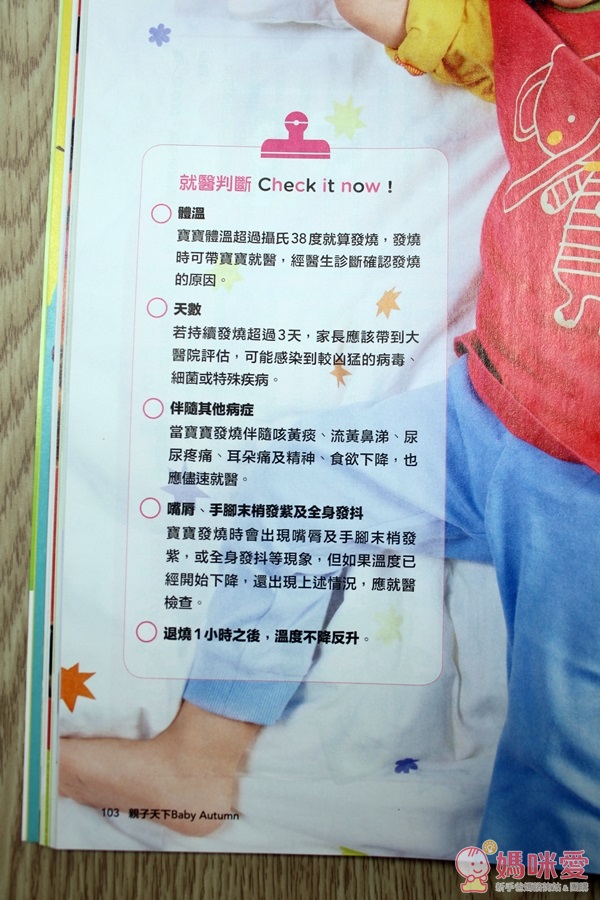 就醫判斷 Check it now！
體溫
寶寶體溫超過攝氏38度就算發燒，發燒
時可帶寶寶就醫，經醫生診斷確認發燒
的原因。
天數
若持續發燒超過3天，家長應該帶到大
醫院評估，可能感染到較凶猛的病毒、
細菌或特殊疾病。
伴隨其他病症
當寶寶發燒伴隨咳黃痰、流黃鼻涕、尿
尿疼痛、耳朵痛及精神、食欲下降，也
應儘速就醫。
嘴唇、手腳末梢發紫及全身發抖
寶寶發燒時會出現嘴唇及手腳末梢發
紫，或全身發抖等現象，但如果溫度已
經開始下降，還出現上述情況，應就醫
檢查。
退燒1小時之後，溫度不降反升。
103 親子天下Baby Autumn
媽咪愛